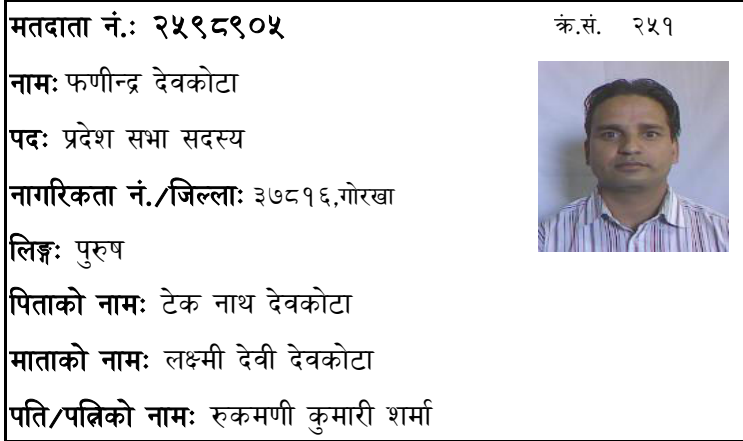 मतदाता नं.: २५९८९०५ क्रं.सं. २५१
नामः फणीन्द्र देवकोटा
पदः प्रदेश सभा सदस्य
नागरिकता नं./जिल्लाः ३७८१६,गोरखा
लिङ्गः पुरुष
पिताको नामः टेक नाथ देवकोटा
माताको नामः लक्ष्मी देवी देवकोटा
पति/पत्निको नामः रुकमणी कुमारी शर्मा